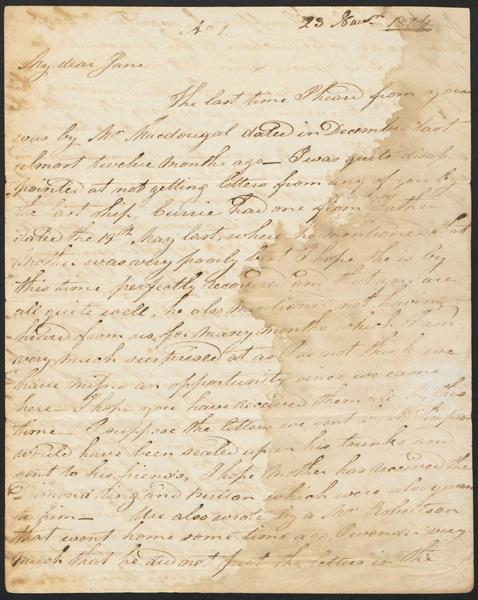 No 1 23 Novr 1824
My dear Jane
The last time I heard from you
was by Mr Macdougal dated in December last
almost twelve months ago — I was quite disap
pointed at not getting letters from any of you by
the last ship, Currie had one from Father
dated the 19th May last, where he mentioned that
Mother was very poorly but I hope she is by
this time perfectly recovered and that you are
all quite well, he also mentioned not having
heard from us for many months which I am
very much surprised at as I do not think we
have missed an opportunity since we came
here — I hope you have received them all by this
time — I suppose the letters we sent
would have been sealed upon his trunks and
sent to his friends, I hope Mother has received the
Diamond ring and which were also given
to him — We also wrote by a Mr Robertson
that went home some time ago, I wonder very
much that he did not put the letters in the